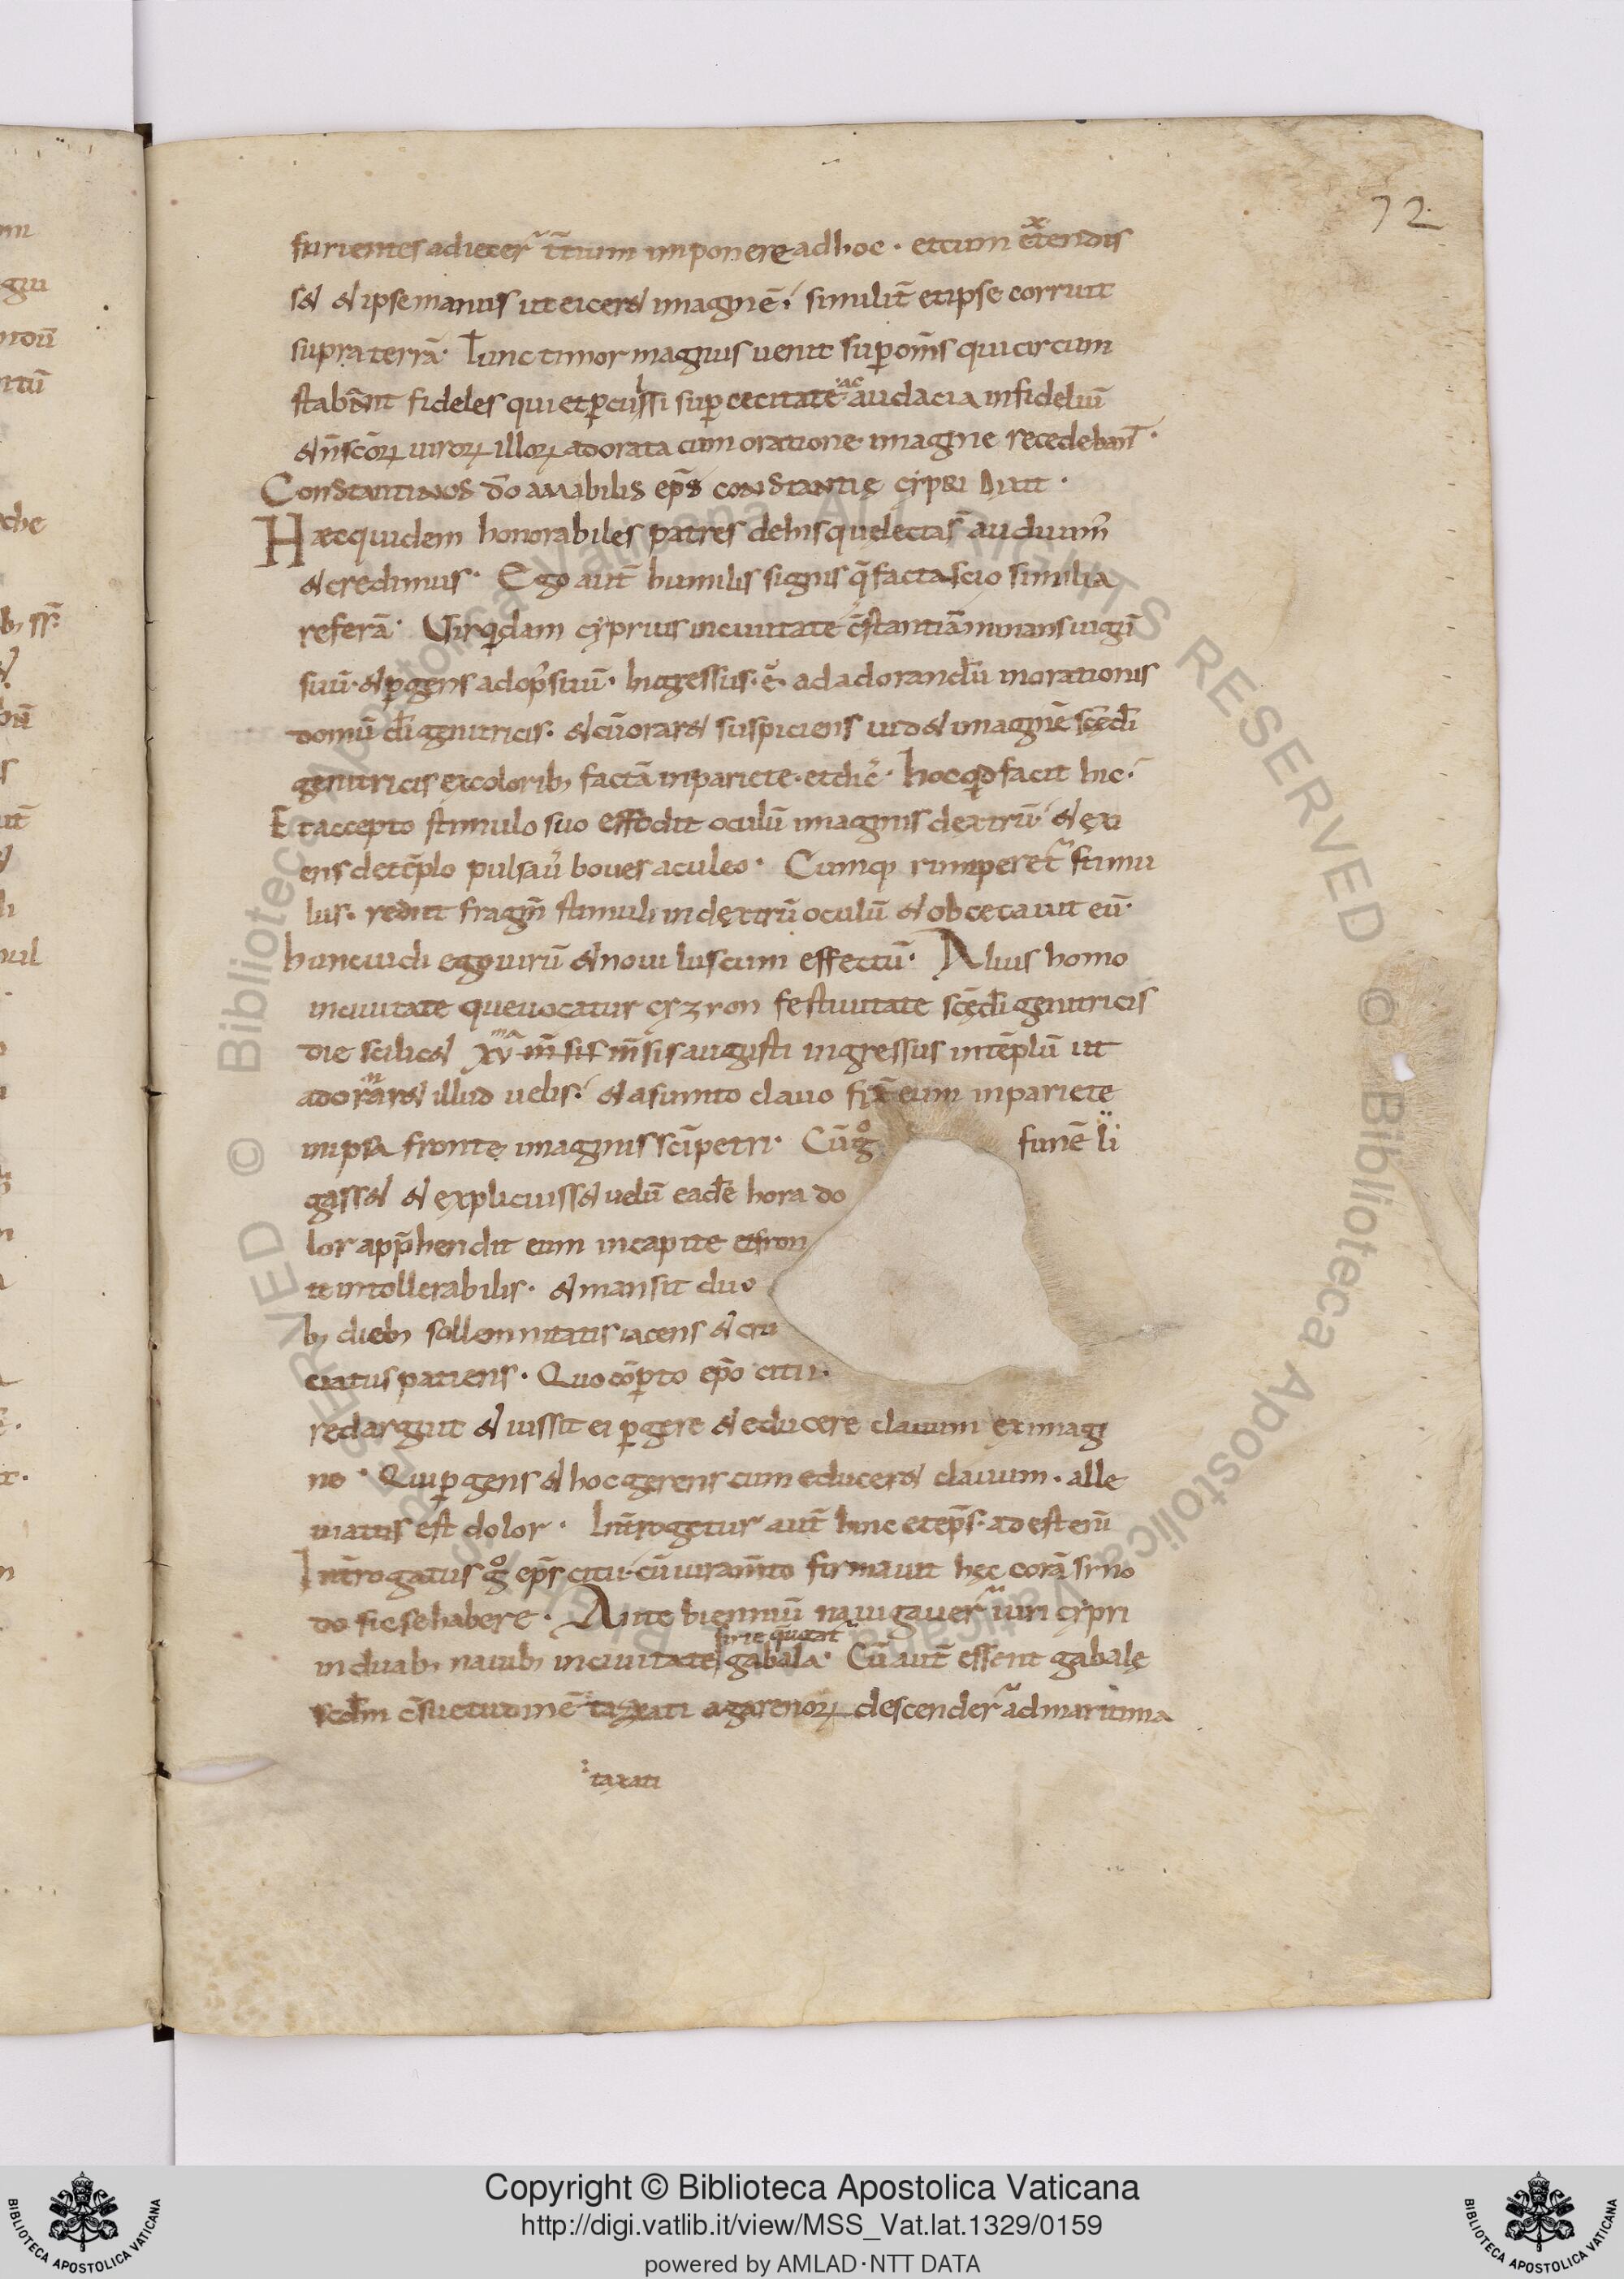 72
furientes adiecerᷓ t̄tium imponere adhoc · et cum extendis
s& & ipse manus ut eicer& imaginē · similit̄ et ipse corruit
supra terrā · Tunc timor magnus uenit sup om̄s qui circum
stabant fideles qui et pculssi sup cecitate ac audacia infideliū
& n̄ scōꝝ uiroꝝ illoꝝ adorata cum oratione imagine recedebant̄ ·
Constantinos dō amabilis ep̄s constantię cypri dixit ·
Hæc quidem honorabiles patres de his que lectas audiuim̄
& credimus · Ego aut̄ humilis signis q̄ facta scio similia
referā · Vir qdam cyprius in ciuitate c̄stantiā minans iugū
suū · & pgens ad op̄ suum · Ingressus · ē · ad adorandū in orationis
domū di͞ genitricis · & cū orar& suspiciens uid& imaginē scę di͞
genitricis ex coloribꝫ factā in pariete · et dic̄ · hoc qd facit hic ·
Et accepto stimulo suo effodit oculū imaginis dextrū · & exi
ens de tēplo pulsau̅ boues aculeo · Cumqꝫ rumperet᷑ stimu
lus · rediit fragm̄ stimuli in dextrū oculū & obcecauit eū ·
hunc uidi ego uirū & noui luscum effectū · Alius homo
in ciuitate que uocatur cyzron festiuitate scę di͞ genitricis
die scilic& xv ma m̄sis m̄sis augusti ingressus in tēplū ut
adornar& illud uelis · & asumto clauo fix̄ eum in pariete
in ipsa fronte imaginis sci͞ petri · Cū gͦ funē li
gass& & explicuiss& uelū eadē hora do
lor app̄hendit eum in capite et fron
te intollerabilis · & mansit duo
bꝫ diebꝫ sollemnitatis iacens & cru
ciatus patiens · Quo cōpto ep̄o citii ·
redarguit & iussit ei pgere & educere clauum ex imagi
ne · Qui pgens & hoc gerens cum educer& clauum · alle
uiatus est dolor · Int̄rogetur aut̄ hinc et ep̄s · adest enī
Int̄rogatus gͦ ep̄s citii · cū iuram̄to firmauit hęc corā sino
do sic se habere · Ante bienniū nauigauerᷓ uiri cypri
in duabꝫ nauibꝫ in ciuitate gabala · Cū aut̄ essent gabalę
scd̄m c̄suetudinē taxati agarenoꝝ descenderᷓ ad maritima
taxati
Copyright © Biblioteca Apostolica Vaticana
http://digi.vatlib.it/view/MSS_Vat.lat.1329/0159
powered by AMLAD·NTT DATA